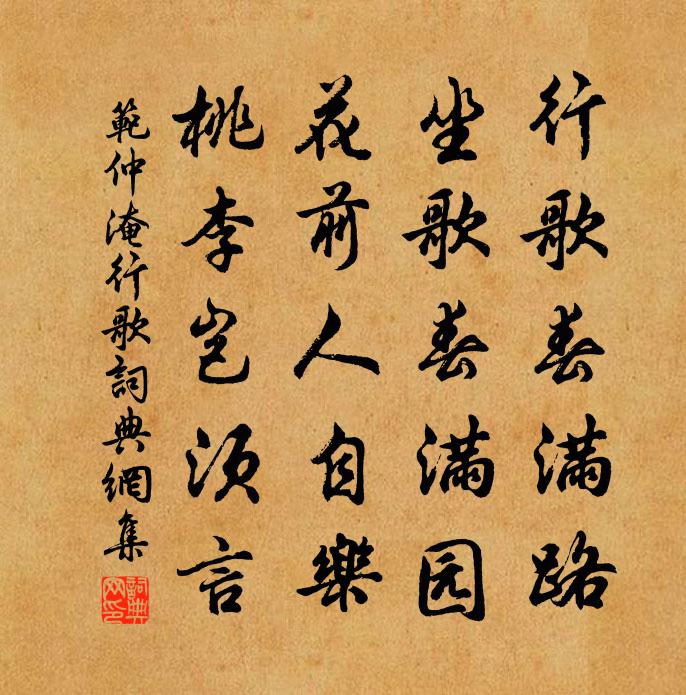 行歌春满路
坐歌春满园
花前人自樂
桃李岂须言
範仲淹行歌詞典網集
詞典网印